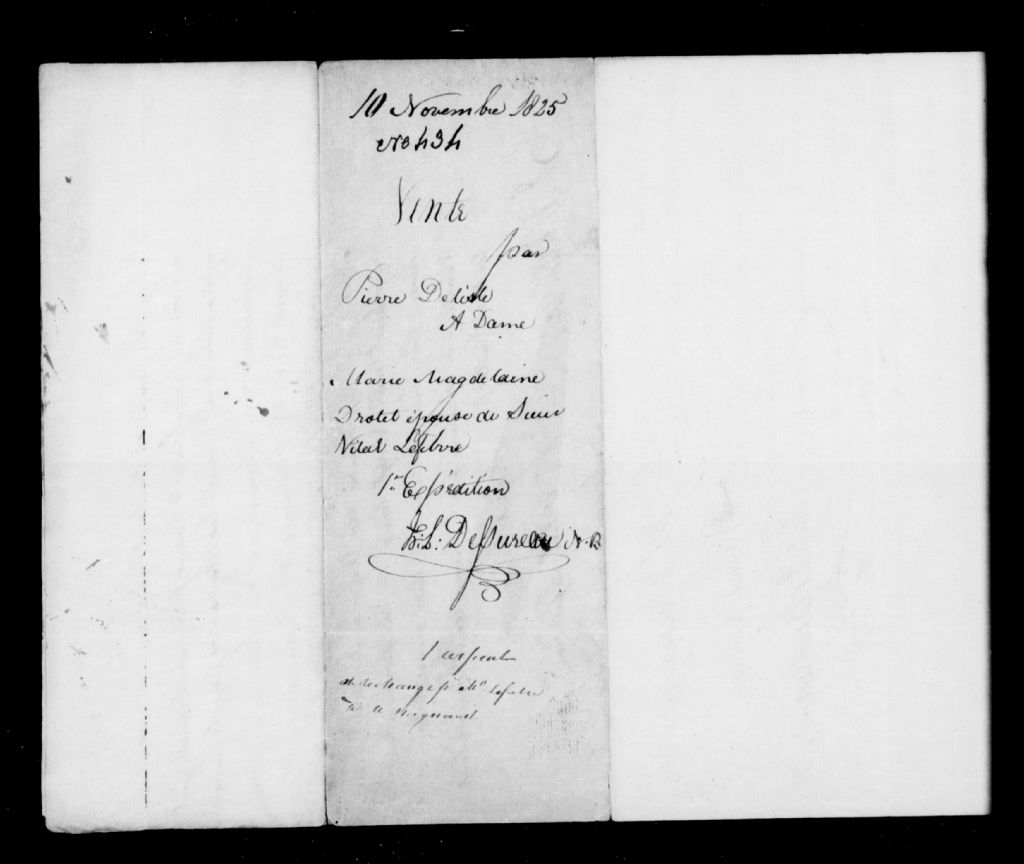 10 Novembre 1825
No 434
Vente
par
Pierre Delisle
A Dame
Marie Magdelaine
Drolet épouse de Sieur
Vital Lefebvre
1re Expédition
Defsureau N.P.
1 arpent
Lefebvre